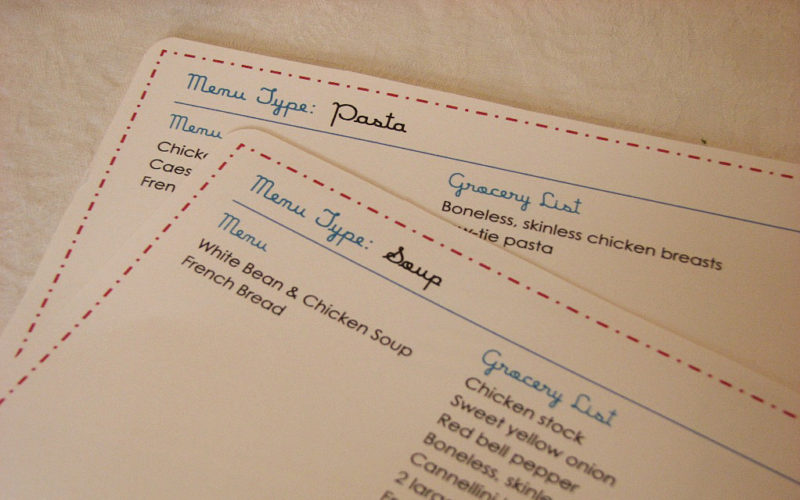 Menu Type: Pasta
Menu
Caes
Fren
Grocery List
Boneless, skinless chicken breasts
tie pasta
Menu Type: Soup
Menu
White Bean & Chicken Soup
French Bread
Grocery List
Chicken stock
Sweet yellow onion
Red bell pepper
Boneless, skinle
Cannellini
2 larg